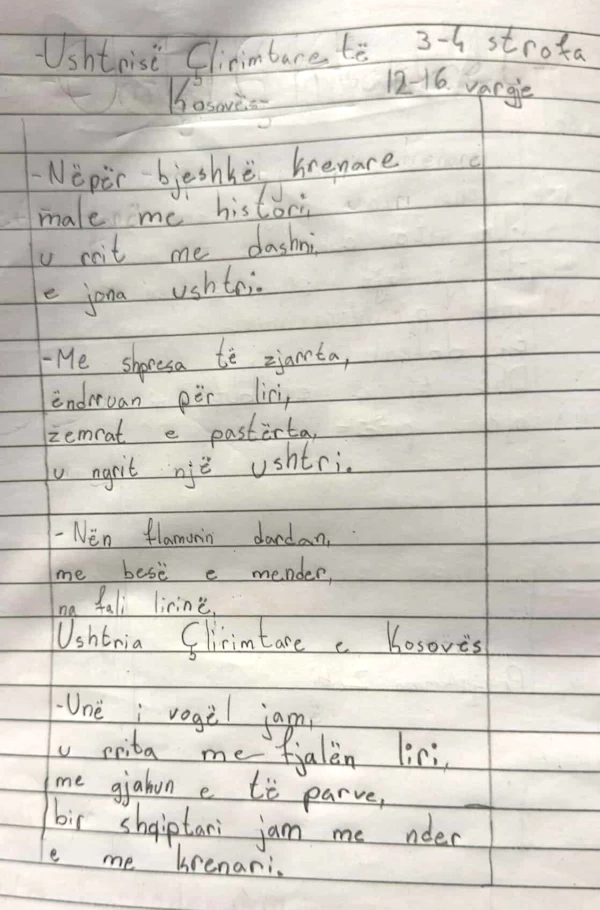 -Ushtrisë Çlirimtare të 3-4 strofa
Kosovës- 12-16 vargje
-Nëpër bjeshkë krenare
male me histori,
u rrit me dashni,
e jona ushtri.
-Me shpresa të zjarrta,
ëndrruan për liri,
zemrat e pastërta,
u ngrit një ushtri.
-Nën flamurin dardan,
me besë e mender,
na fali lirinë,
Ushtria Çlirimtare e Kosovës
-Unë i vogël jam,
u rrita me fjalën liri,
me gjakun e të parve,
bir shqiptari jam me nder
e me krenari.